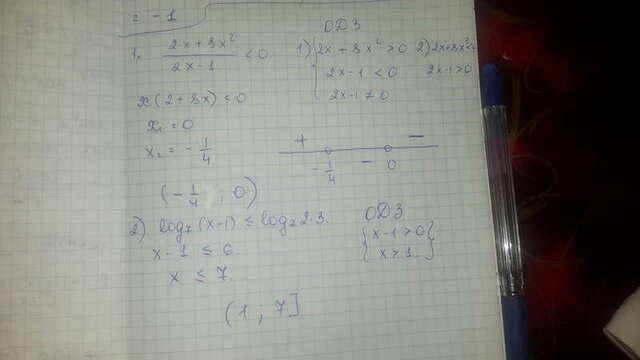 = -1
1. (2x + 8x²)/(2x - 1) < 0
ОДЗ
1) { 2x + 8x² > 0
2x - 1 < 0
2x - 1 ≠ 0
2) 2x+8x² <
2x-1 > 0
x(2 + 8x) < 0
x₁ = 0
x₂ = - 1/4
+ - -
- 1/4 0
(- 1/4 , 0)
2) log₇(x-1) ≤ log₇ 2·3.
x - 1 ≤ 6.
x ≤ 7.
ОДЗ
{ x - 1 > 0 }
{ x > 1. }
(1 ; 7]